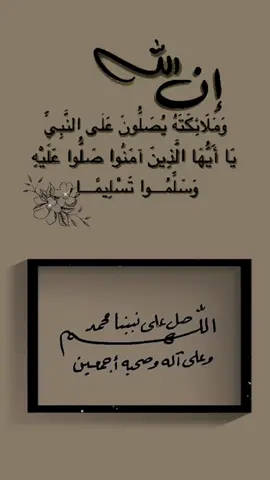 إن الله
وَمَلَائِكَتَهُ يُصَلُّونَ عَلَى النَّبِيِّ
يَا أَيُّهَا الَّذِينَ آمَنُوا صَلُّوا عَلَيْهِ
وَسَلِّمُـــوا تَسْلِيمًـــا
اللهم صل على نبينا محمد
وعلى آله وصحبه أجمعين